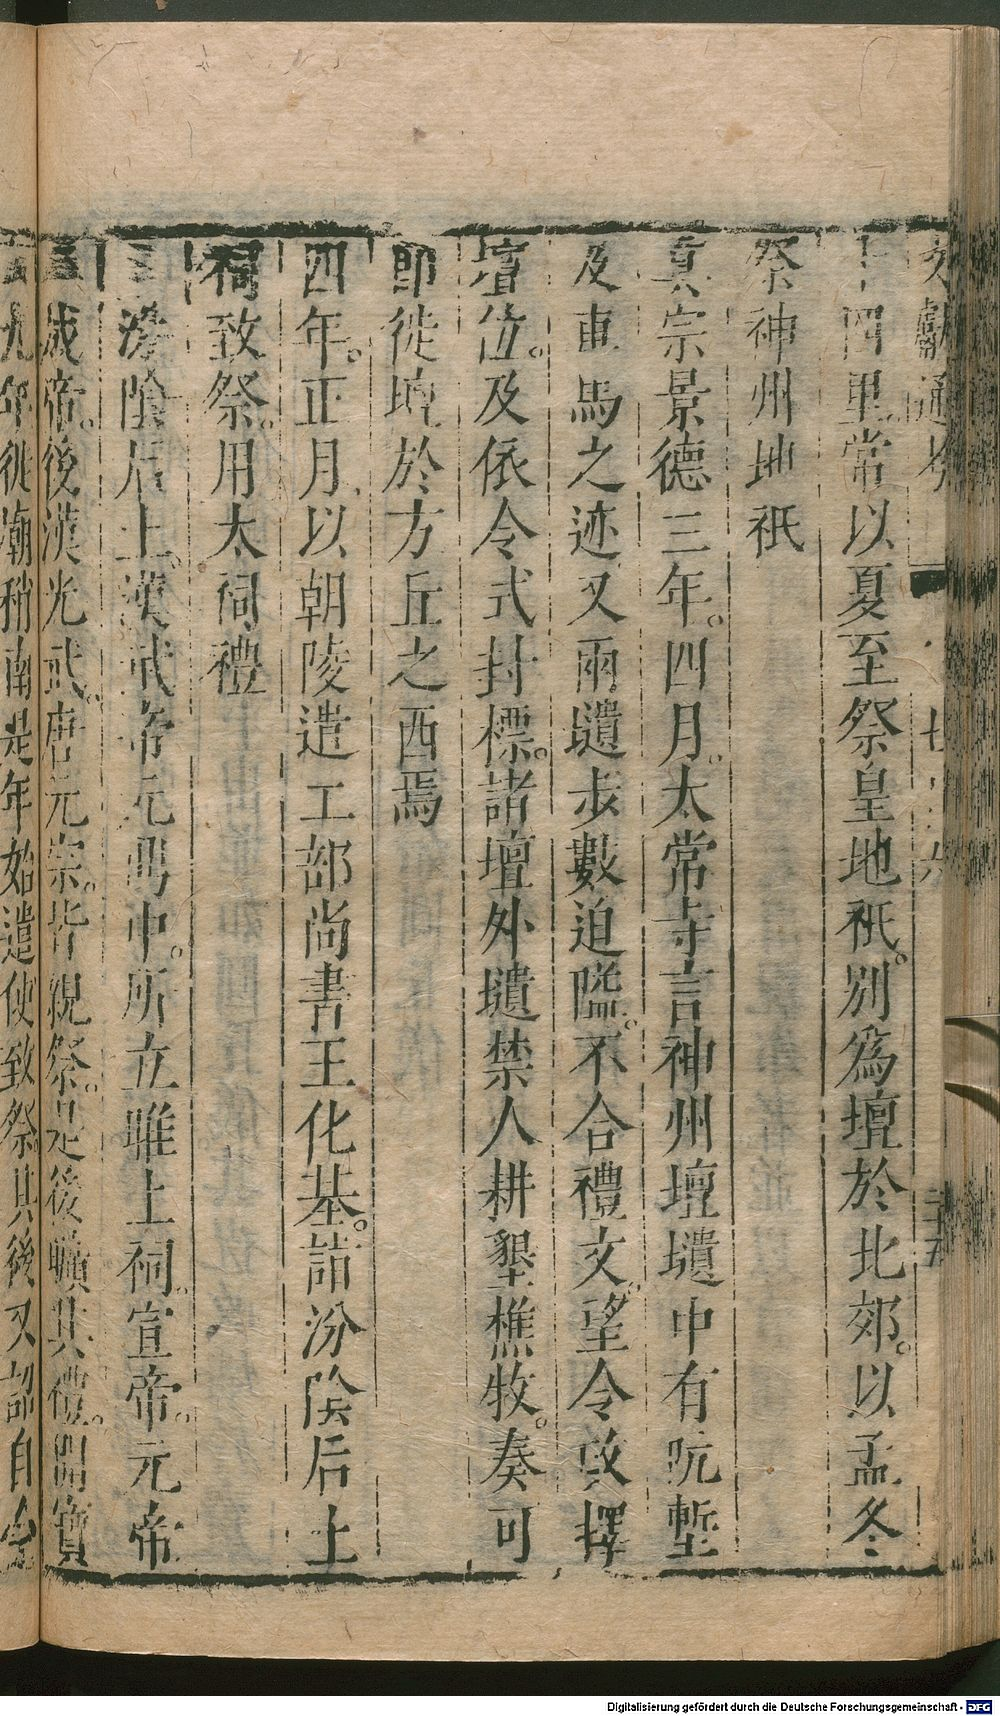 文獻通考 卷七十六 二十五
十四里常以夏至祭皇地祇。別為壇於北郊。以孟冬
祭神州地祇
真宗景德三年。四月。太常寺言神州壇壝中有阬塹
及車馬之迹又兩壝步數迫隘。不合禮文。望令改擇
壇位。及依令式封標。諸壇外壝禁人耕墾樵牧。奏可
即徙壇於方丘之西焉
四年。正月。以朝陵遣工部尚書王化基。詣汾陰后土
祠致祭。用太祠禮
汾陰后土。漢武帝元鼎中。所立脽上祠。宣帝。元帝
成帝。後漢光武。唐元宗。皆親祭。是後曠其禮。開寶
九年徙廟稍南是年始遣使致祭其後又詔自今
Digitalisierung gefördert durch die Deutsche Forschungsgemeinschaft - DFG